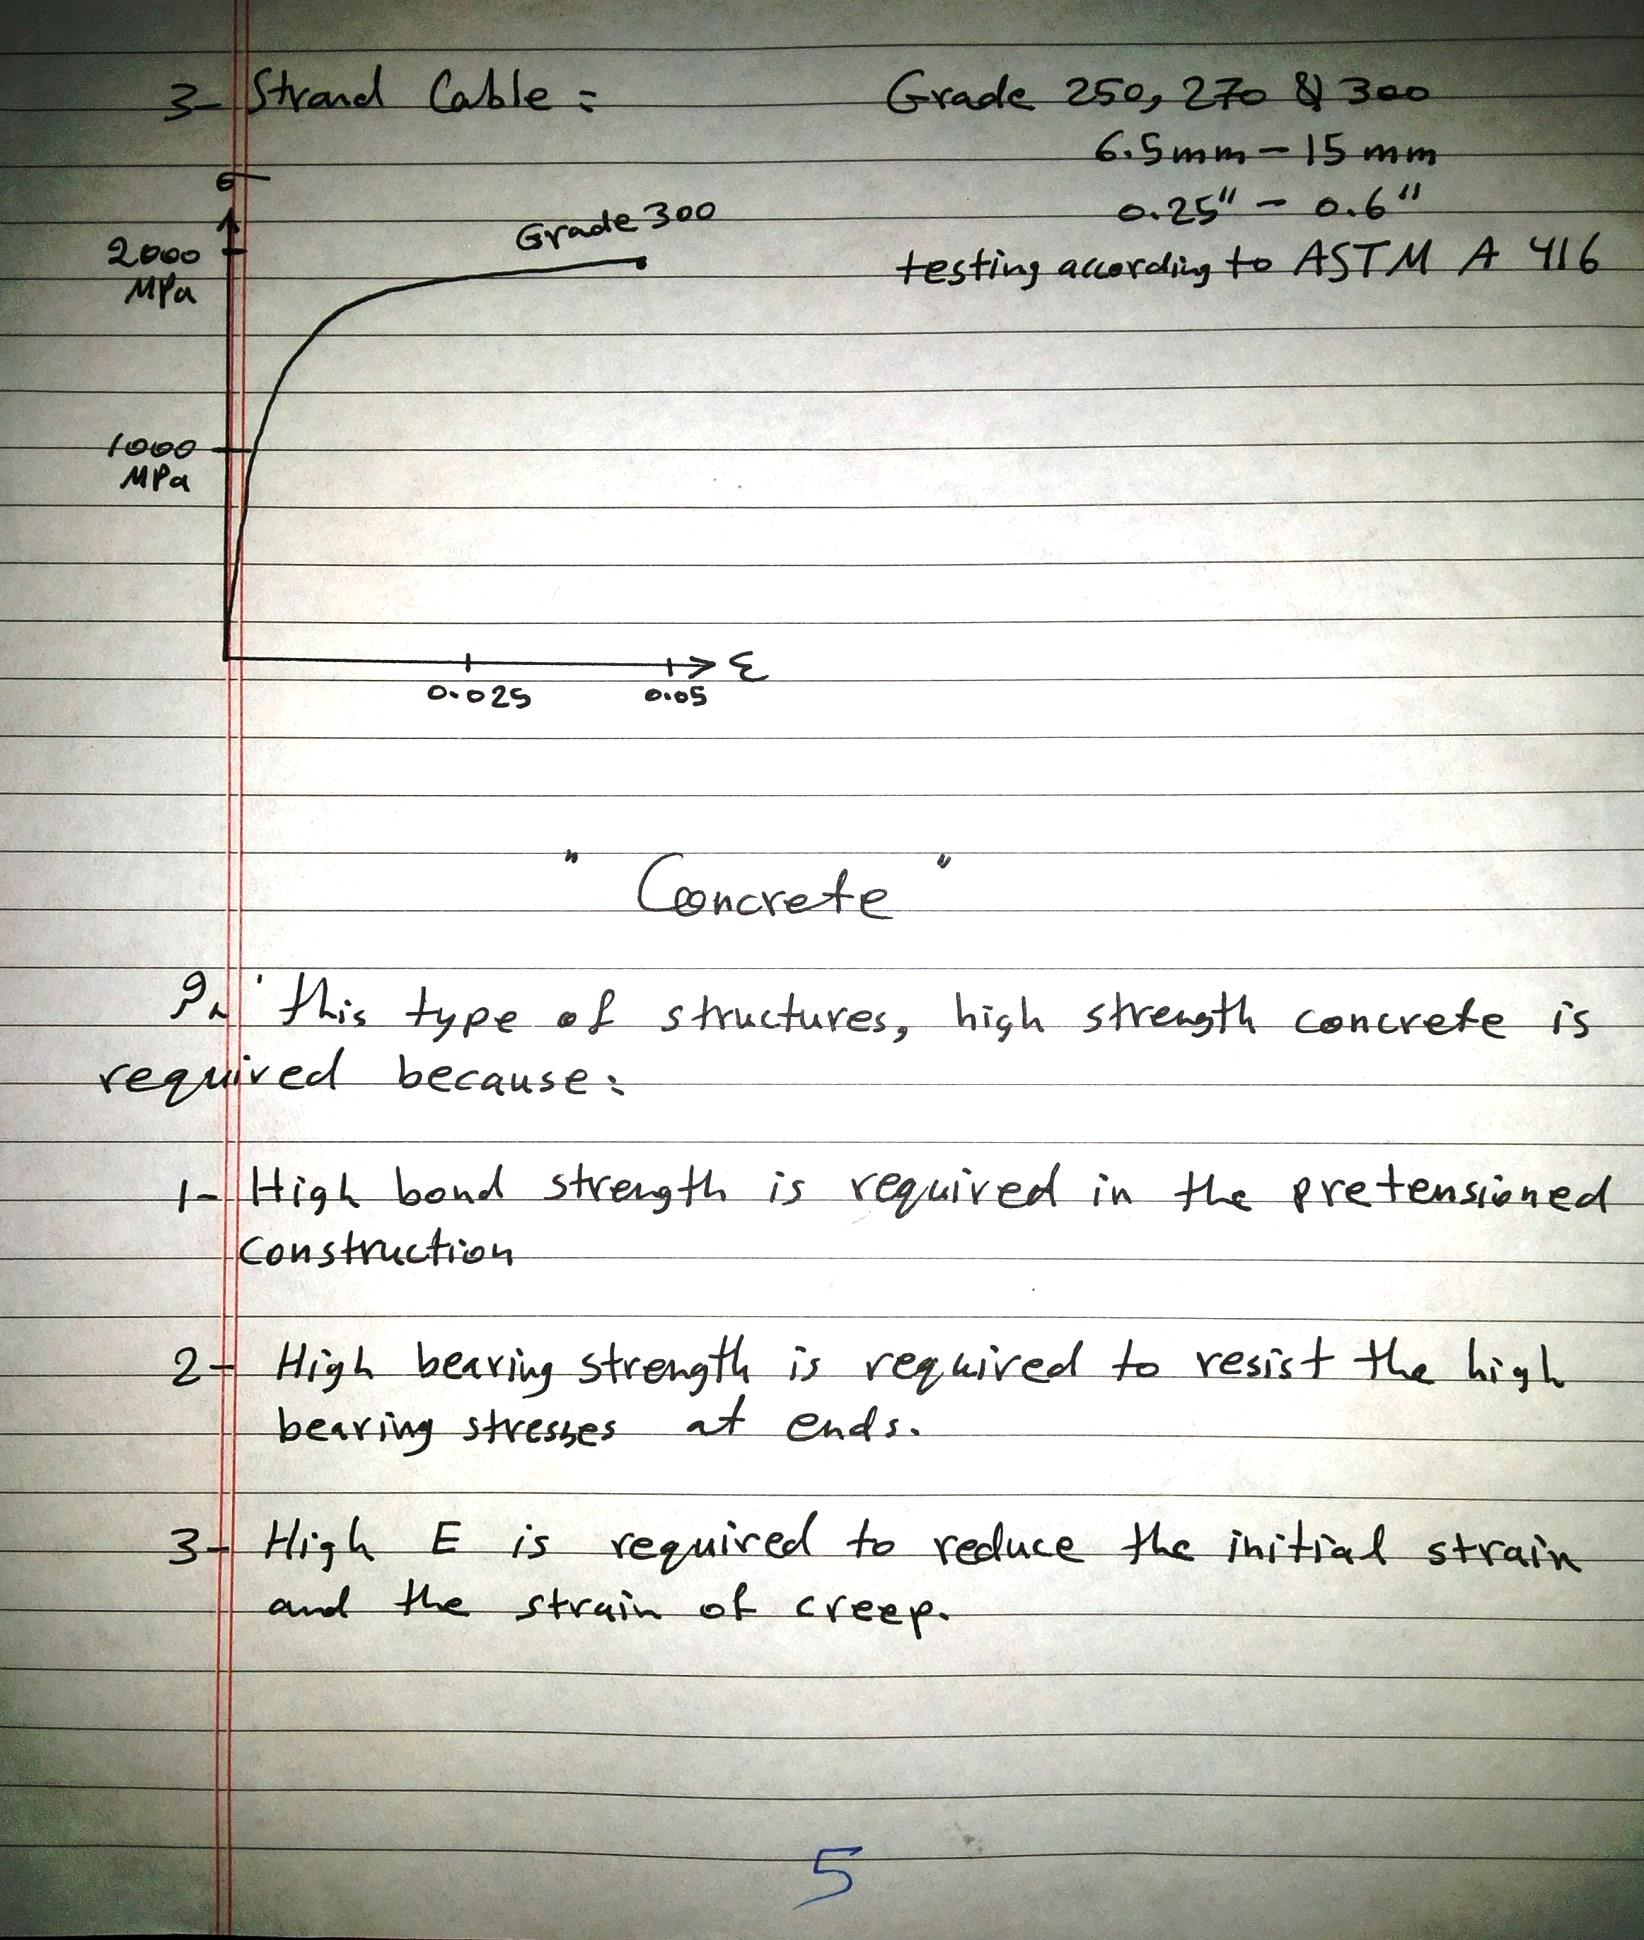 3- Strand Cable :
Grade 250, 270 & 300
6.5mm - 15 mm
0.25" - 0.6"
testing according to ASTM A 416
σ
2000
MPa
Grade 300
1000
MPa
0.025
0.05
ε
" Concrete "
In this type of structures, high strength concrete is
required because:
1- High bond strength is required in the pretensioned
construction
2- High bearing strength is required to resist the high
bearing stresses at ends.
3- High E is required to reduce the initial strain
and the strain of creep.
5